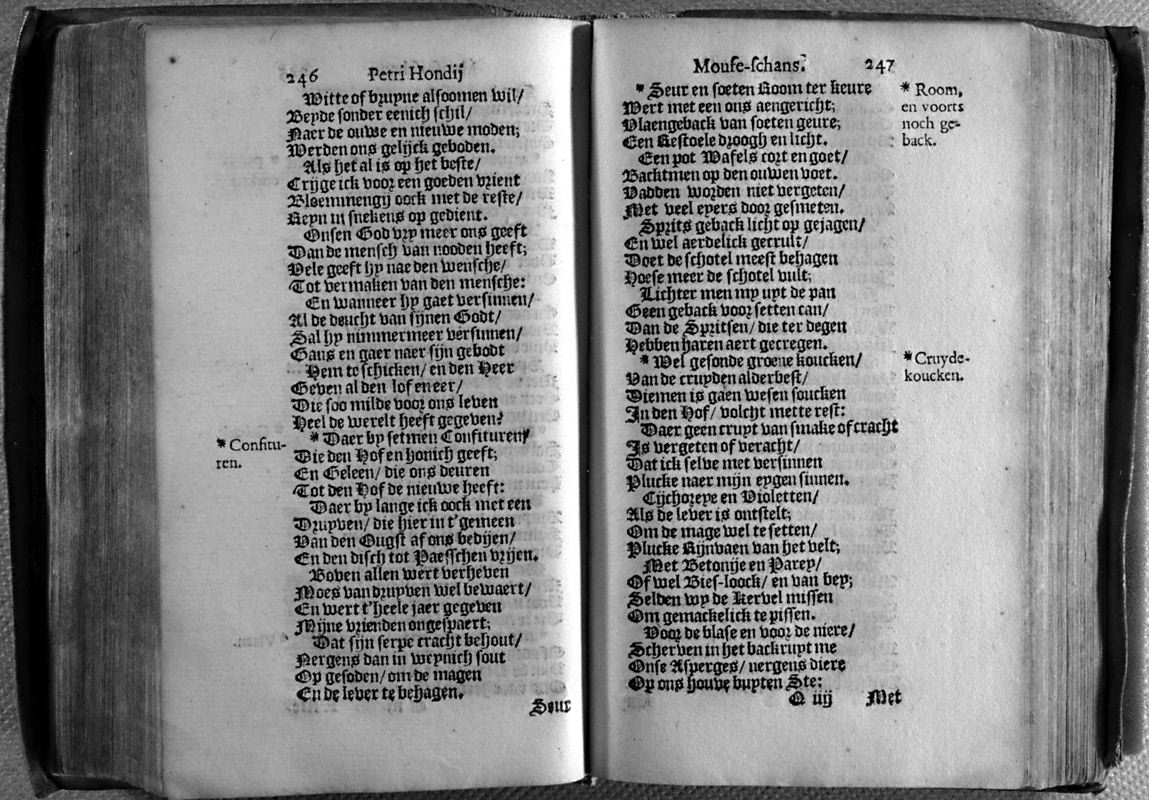 246 Petri Hondij
Witte of bruyne alsoomen wil/
Beyde sonder eenich schil/
Naer de ouwe en nieuwe moden;
Werden ons gelijck geboden.
Als het al is op het beste/
Crijge ick voor een goeden vrient
Bloemmengij oock met de reste/
Reyn in snekens op gedient.
Onsen God vry meer ons geeft
Dan de mensch van nooden heeft;
Vele geeft hy nae den wensche/
Tot vermaken van den mensche:
En wanneer hy gaet versinnen/
Al de deucht van sijnen Godt/
Sal hy nimmermeer versinnen/
Gans en gaer naer sijn gebodt
Hem te schicken/ en den Heer
Geven al den lof en eer/
Die soo milde voor ons leven
Heel de werelt heeft gegeven?
* Daer by setmen Confituren/
* Confitu-
ren.
Die den Hof en honich geeft;
En Geleen/ die ons deuren
Tot den Hof de nieuwe heeft:
Daer by lange ick oock met een
Druyven/ die hier in t'gemeen
Van den Ougst af ons bedijen/
En den disch tot Paesschen vrijen.
Boven allen wert verheven
Moes van druyven wel bewaert/
En wert t'heele jaer gegeven
Mijne vrienden ongespaert;
Dat sijn serpe cracht behout/
Nergens dan in weynich sout
Op gesoden/ om de magen
En de lever te behagen.
Seur
Mouse-schans. 247
* Seur en soeten Room ter keure
* Room,
en voorts
noch ge-
back.
Wert met een ons aengericht;
Vlaengeback van soeten geure;
Een Kestoele droogh en licht.
Een pot Wafels cort en goet/
Backtmen op den ouwen voet.
Vadden worden niet vergeten/
Met veel eyers door gesmeten.
Sprits geback licht op gejagen/
En wel aerdelick gecrult/
Doet de schotel meest behagen
Hoese meer de schotel vult;
Lichter men my uyt de pan
Geen geback voor setten can/
Dan de Spritsen/ die ter degen
Hebben haren aert gecregen.
* Wel gesonde groene koucken/
* Cruyde-
koucken.
Van de cruyden alderbest/
Diemen is gaen wesen soucken
In den Hof/ volcht mette rest:
Daer geen cruyt van smake of cracht
Is vergeten of veracht/
Dat ick selve met versinnen
Plucke naer mijn eygen sinnen.
Cijchoreye en Violetten/
Als de lever is ontstelt;
Om de mage wel te setten/
Plucke Rijnvaen van het velt;
Met Betonije en Parey/
Of wel Bies-loock/ en van bey;
Selden wy de Kervel missen
Om gemackelick te pissen.
Voor de blase en voor de niere/
Scherven in het backruyt me
Onse Asperges/ nergens diere
Op ons houve buyten Ste:
Q iiij Met